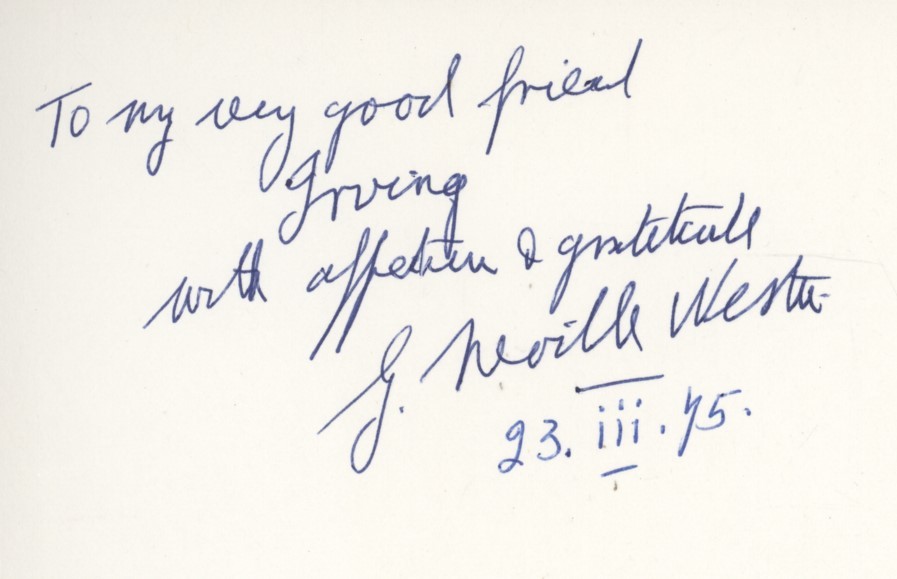 To my very good friend
Irving
with affection & gratitude
G. Neville Weston
23. iii. 75.